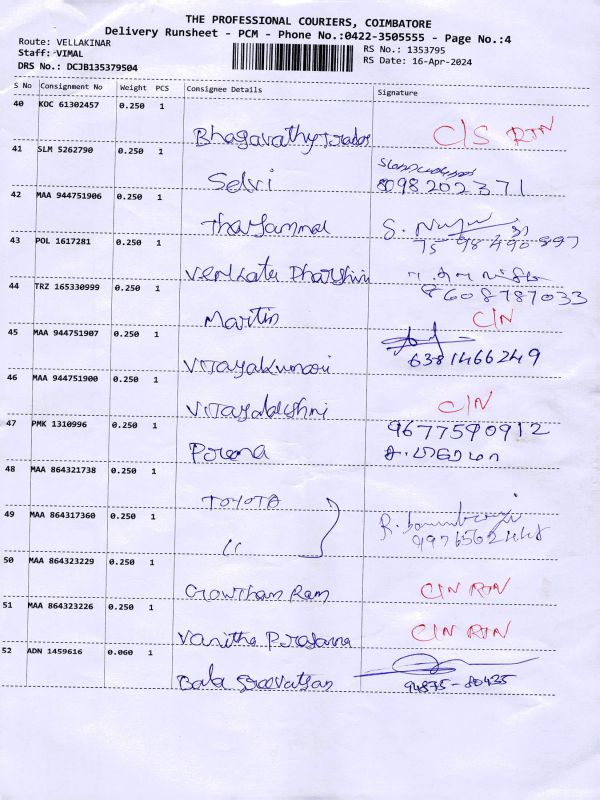 THE PROFESSIONAL COURIERS, COIMBATORE
Delivery Runsheet - PCM - Phone No.:0422-3505555 - Page No.:4
Route: VELLAKINAR
RS No.: 1353795
Staff: VIMAL
RS Date: 16-Apr-2024
DRS No.: DCJB135379504
S No Consignment No Weight PCS Consignee Details Signature
40 KOC 61302457 0.250 1
Bhagavathy Traders C/S RTN
41 SLM 5262790 0.250 1
Selvi 8098202371
42 MAA 944751906 0.250 1
Thayammal S.
75 98 490 897
43 POL 1617281 0.250 1
Venkata Dharshini
8608787033
44 TRZ 165330999 0.250 1
Martin C/N
45 MAA 944751907 0.250 1
Vijayakumari 6381466249
46 MAA 944751900 0.250 1
Vijayalakshmi C/N
47 PMK 1310996 0.250 1 9677590912
Poroma
48 MAA 864321738 0.250 1
TOYOTA
49 MAA 864317360 0.250 1
"
50 MAA 864323229 0.250 1
Gowtham Ram C/N RTN
51 MAA 864323226 0.250 1
Vanitha Prasanna C/N RTN
52 ADN 1459616 0.060 1
Bala Sreevatsan 94875-80435